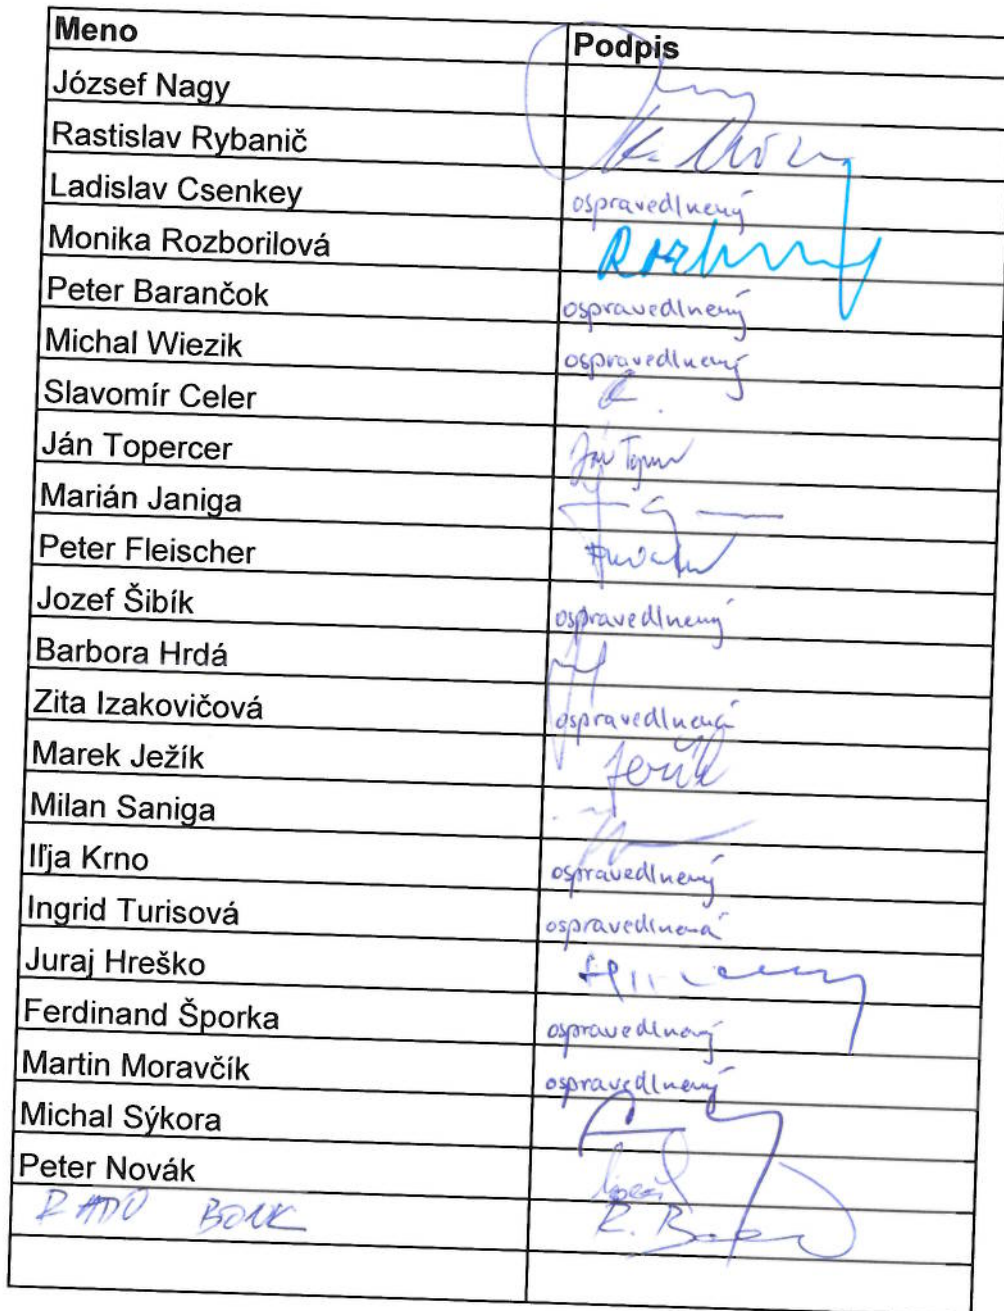 Meno Podpis
József Nagy
Rastislav Rybanič
Ladislav Csenkey ospravedlnený
Monika Rozborilová
Peter Barančok ospravedlnený
Michal Wiezik ospravedlnený
Slavomír Celer
Ján Topercer
Marián Janiga
Peter Fleischer
Jozef Šibík ospravedlnený
Barbora Hrdá
Zita Izakovičová ospravedlnená
Marek Ježík
Milan Saniga
Iľja Krno ospravedlnený
Ingrid Turisová ospravedlnená
Juraj Hreško
Ferdinand Šporka ospravedlnený
Martin Moravčík ospravedlnený
Michal Sýkora
Peter Novák